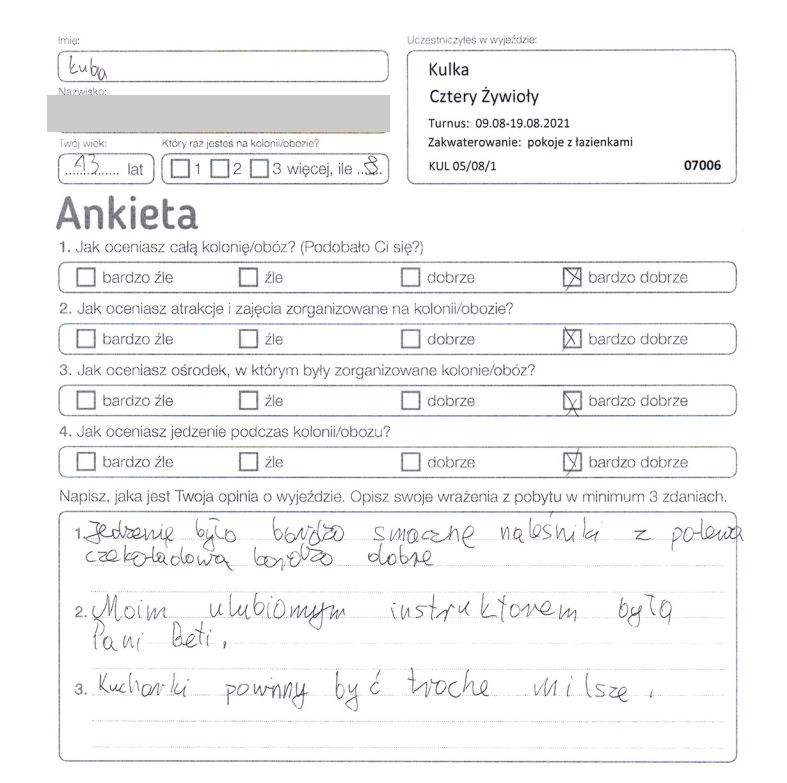 Imię:
Łuba
Nazwisko:
Twój wiek:
13 lat
Który raz jesteś na kolonii/obozie?
1 2 3 więcej, ile 8
Uczestniczyłeś w wyjeździe:
Kulka
Cztery Żywioły
Turnus: 09.08-19.08.2021
Zakwaterowanie: pokoje z łazienkami
KUL 05/08/1 07006
Ankieta
1. Jak oceniasz całą kolonię/obóz? (Podobało Ci się?)
bardzo źle źle dobrze bardzo dobrze
2. Jak oceniasz atrakcje i zajęcia zorganizowane na kolonii/obozie?
bardzo źle źle dobrze bardzo dobrze
3. Jak oceniasz ośrodek, w którym były zorganizowane kolonie/obóz?
bardzo źle źle dobrze bardzo dobrze
4. Jak oceniasz jedzenie podczas kolonii/obozu?
bardzo źle źle dobrze bardzo dobrze
Napisz, jaka jest Twoja opinia o wyjeździe. Opisz swoje wrażenia z pobytu w minimum 3 zdaniach.
1. Jedzenie było bardzo smaczne naleśniki z polewą
czekoladową bardzo dobre
2. Moim ulubionym instruktorem była
Pani Beti.
3. Kucharki powinny być troche milsze.